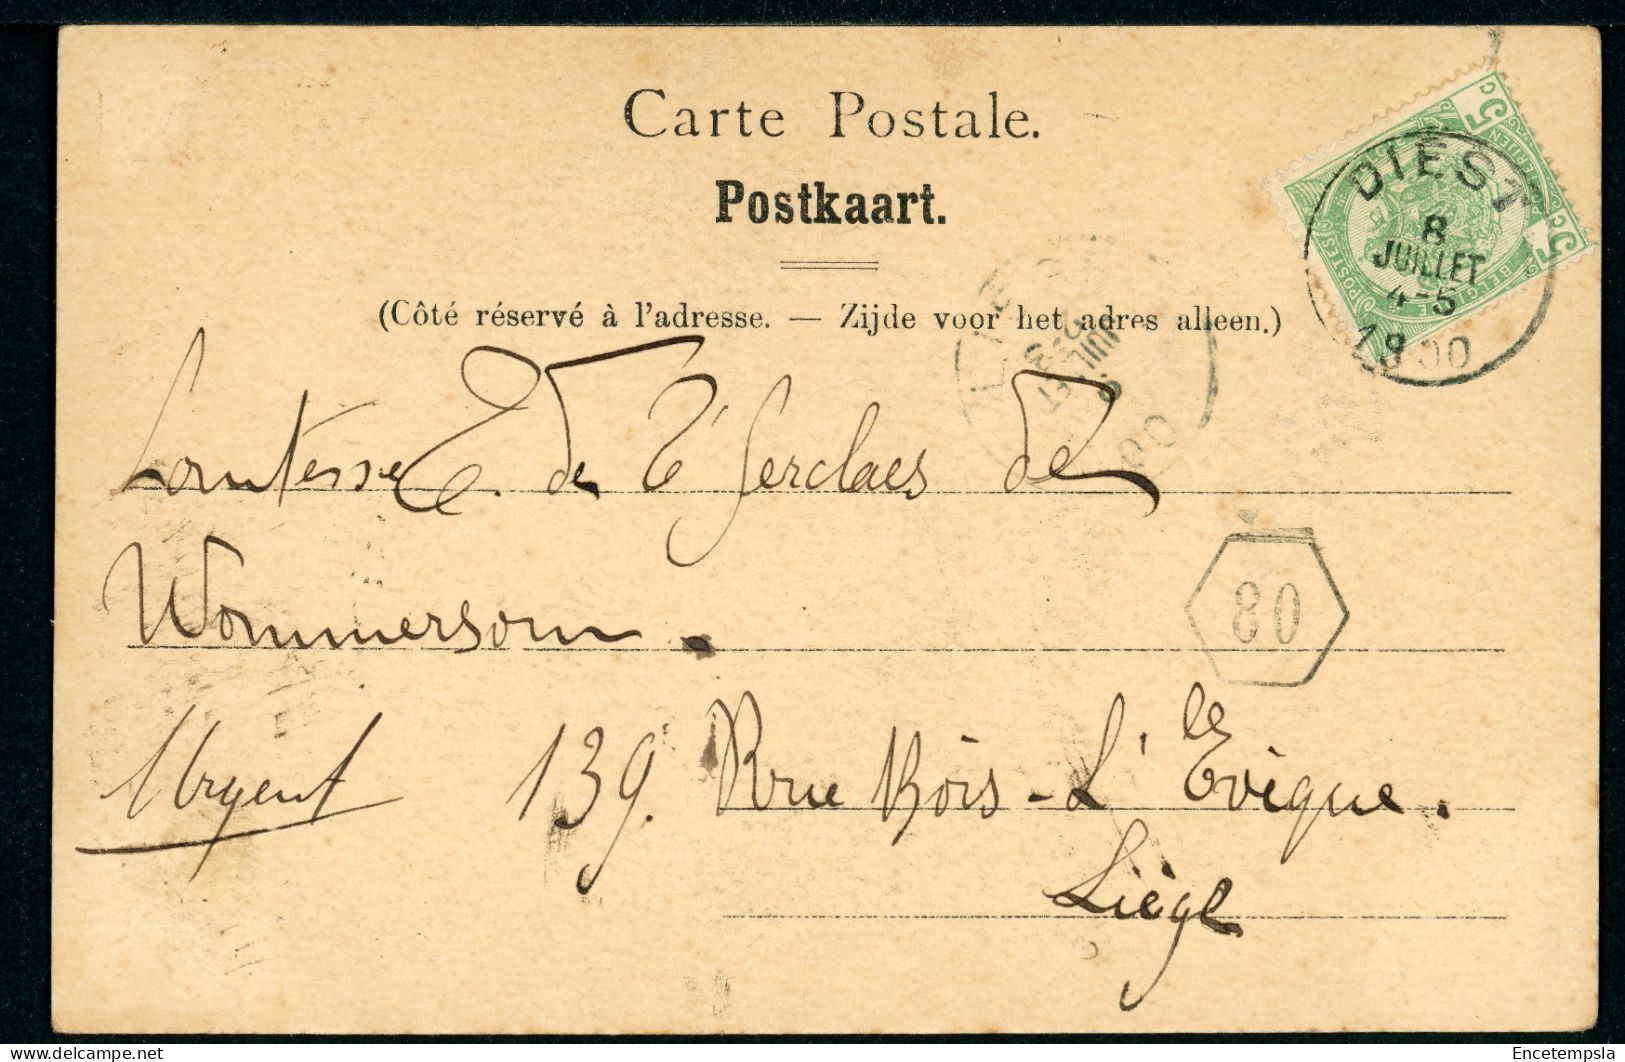 Carte Postale.
Postkaart.
(Côté réservé à l'adresse. — Zijde voor het adres alleen.)
5c
5c
POSTES BELGIE
DIEST
8
JUILLET
4-5
1900
JUILLET
Comtesse E. de T'Serclaes de
Wommersom.
80
Urgent 139. Rue Bois-L'Evêque.
Liège
delcampe.net
Encetempsla